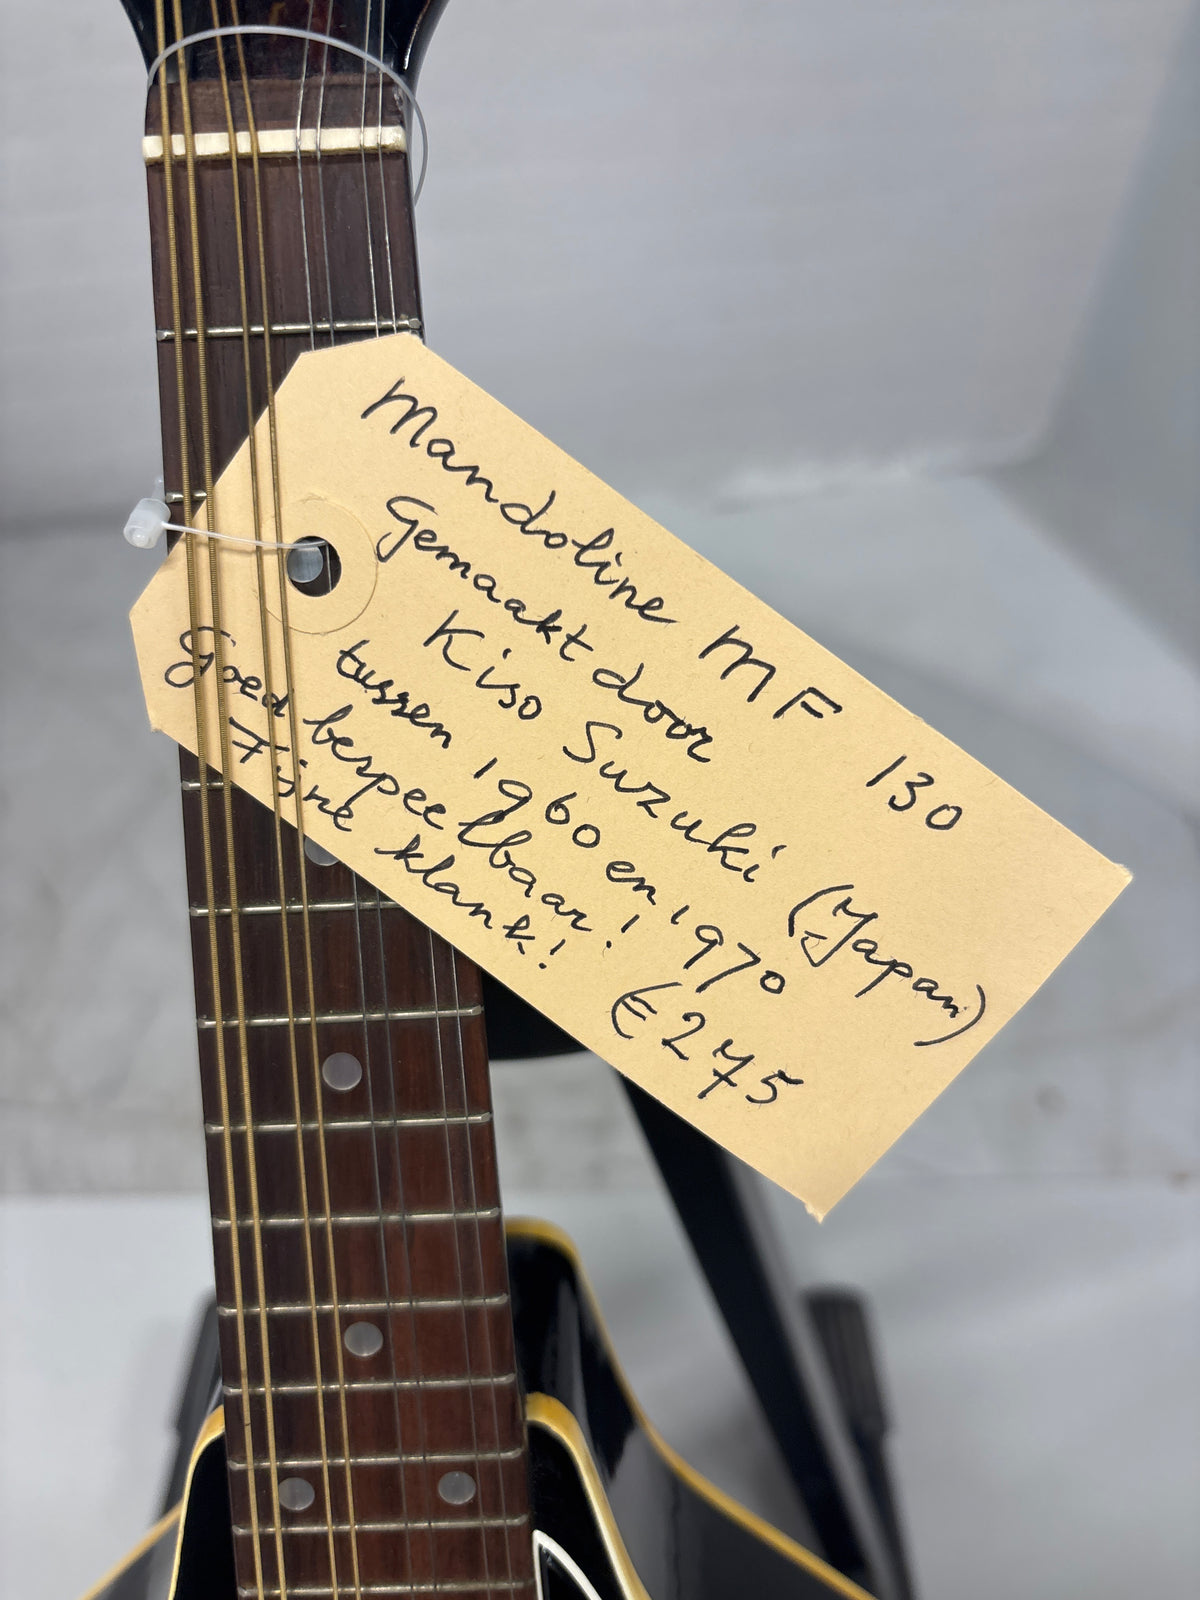 Mandoline MF 130
Gemaakt door
Kiso Suzuki (Japan)
tussen 1960 en 1970
Goed bespeelbaar!
Fijne klank!
€ 275